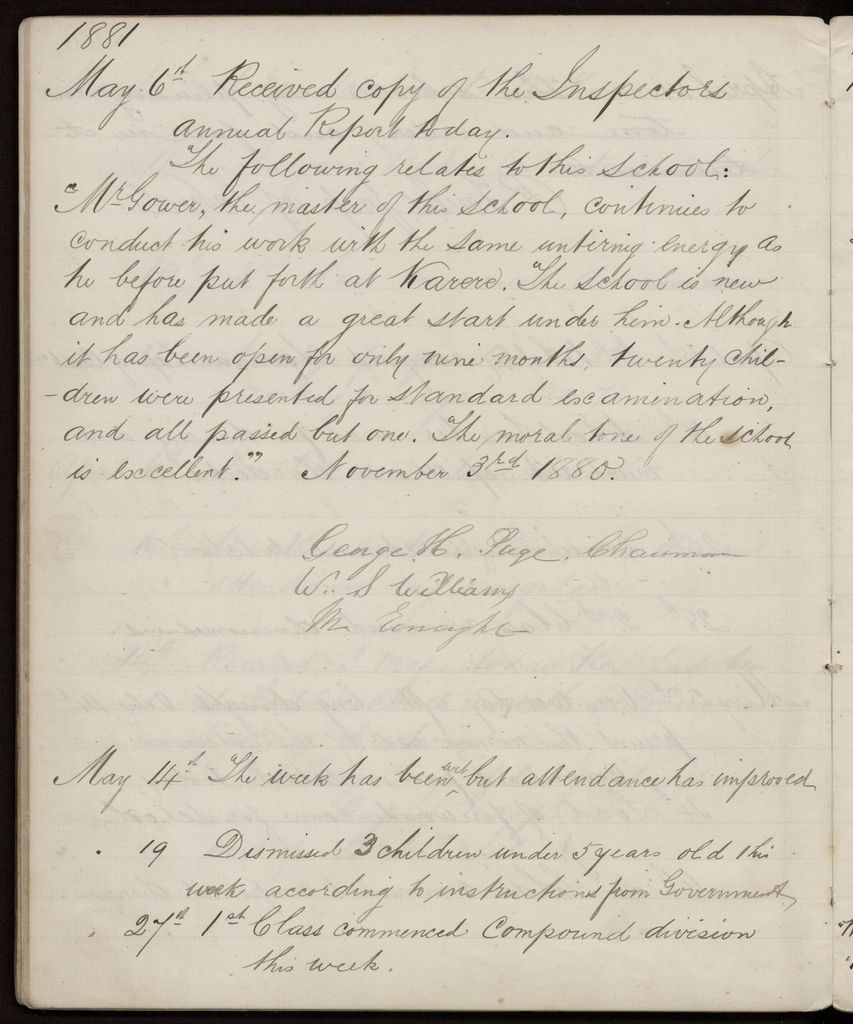 1881
May 6th Received copy of the Inspectors
annual Report today.
The following relates to this school:
"Mr Gower, the master of this school, continues to
conduct his work with the same untiring energy as
he before put forth at Karere. The school is new
and has made a great start under him. Although
it has been open for only nine months, twenty chil-
-dren were presented for standard examination,
and all passed but one. The moral tone of the school
is excellent." November 3rd 1880.
George H. Page. Chairman
W. S Williams
M Enright
May 14th The week has been wet but attendance has improved
" 19 Dismissed 3 children under 5 years old this
week according to instructions from Government
" 27th 1st Class commenced Compound division
this week.